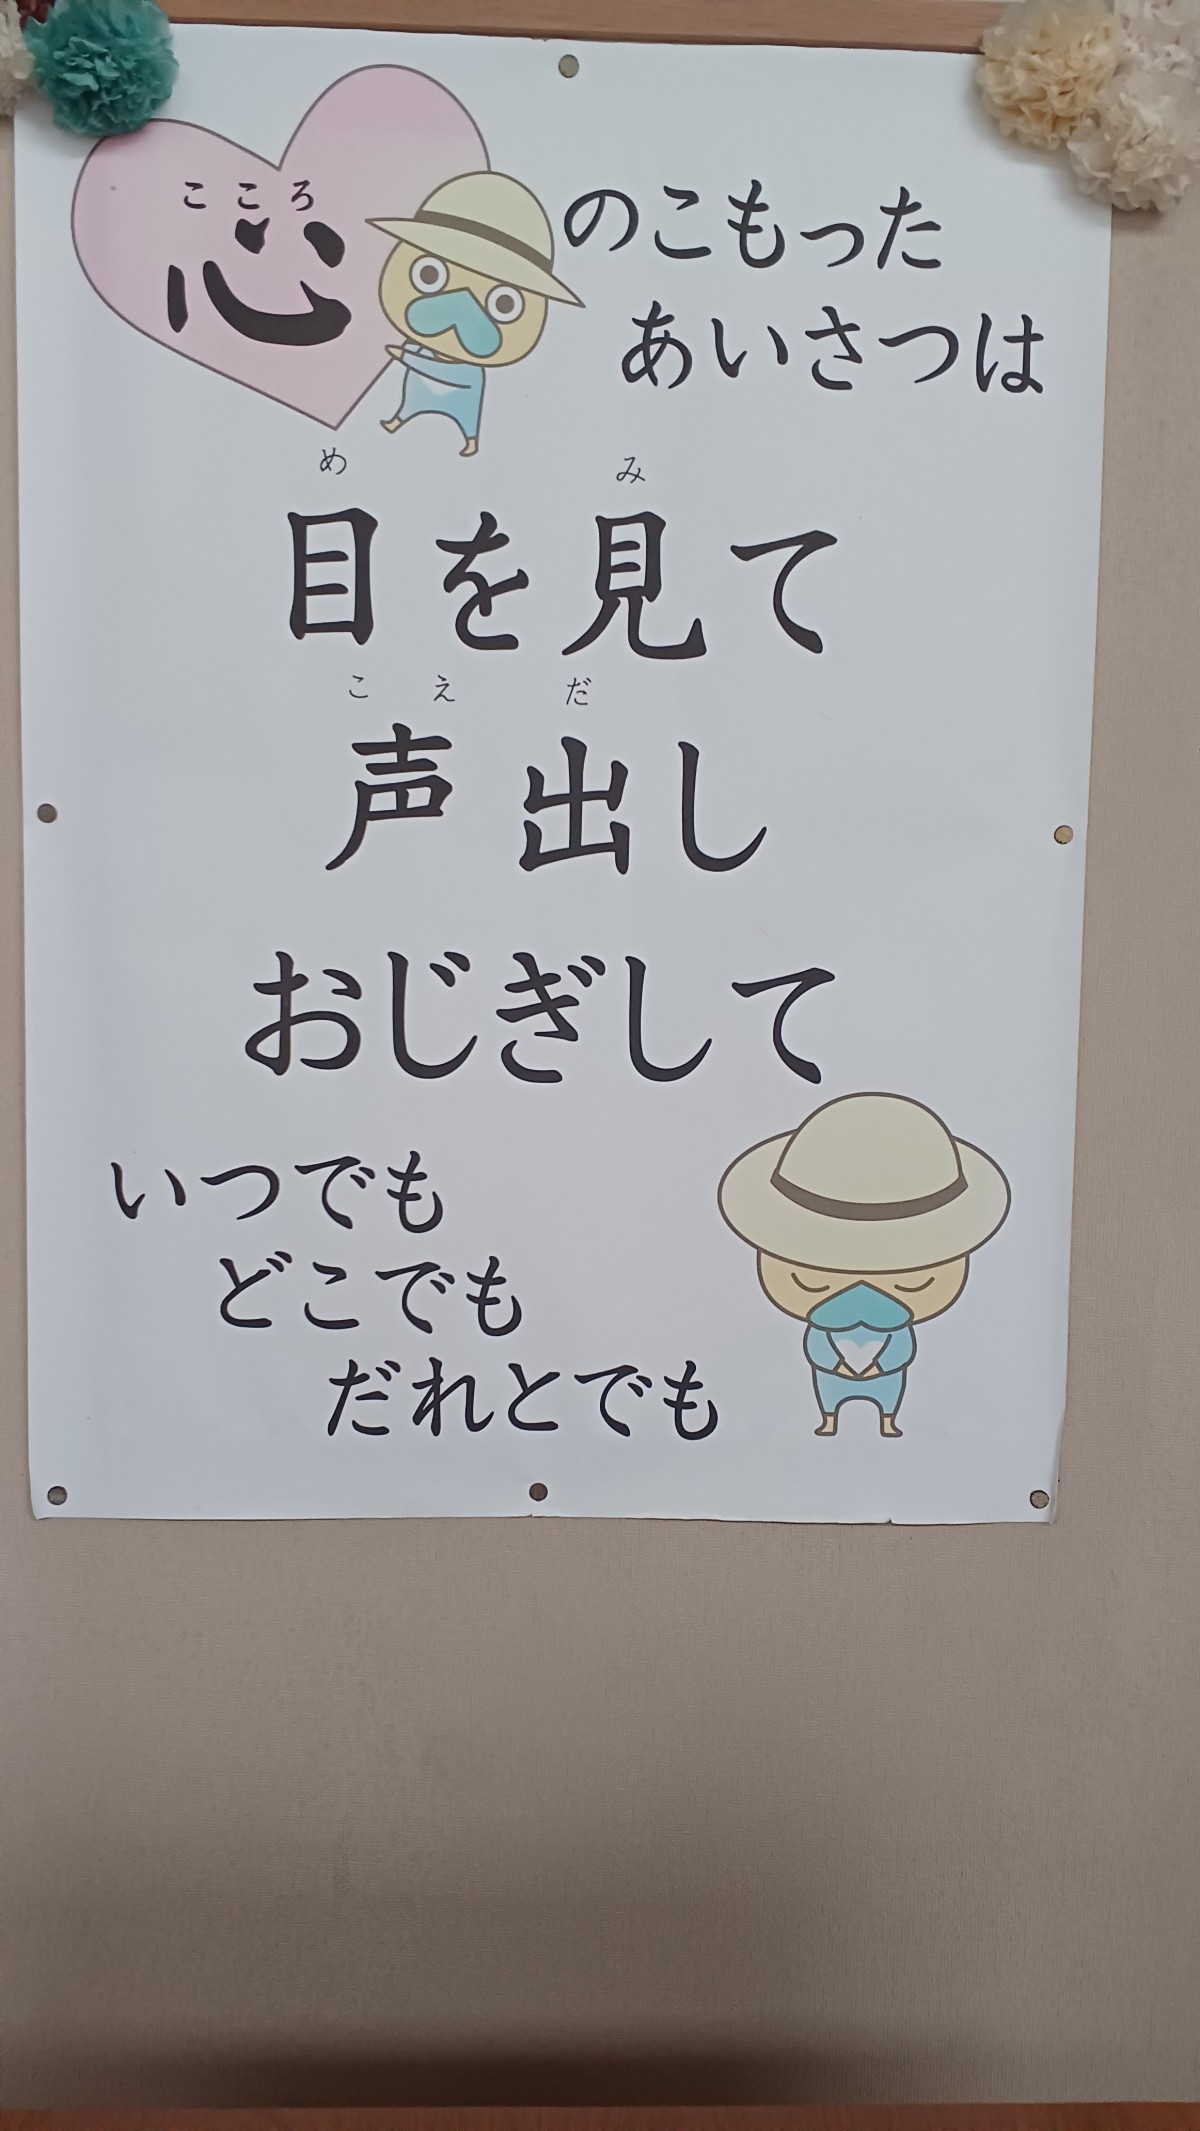 こころ
心のこもった
あいさつは
め み
目を見て
こえ だ
声出し
おじぎして
いつでも
どこでも
だれとでも